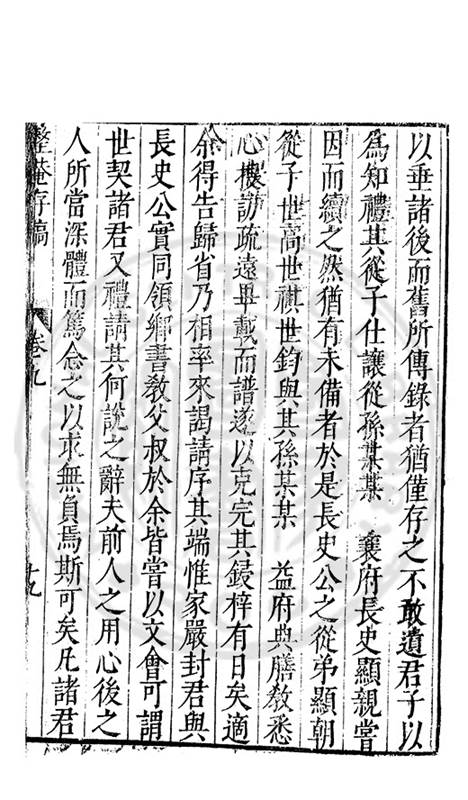 以垂諸後而舊所傳錄者猶僅存之不敢遺君子以
為知禮其從子仕讓從孫某某 襄府長史顯親嘗
因而續之然猶有未備者於是長史公之從弟顯朝
從子世高世祺世鈞與其孫某某 益府典膳敎悉
心搜訪疏遠畢載而譜遂以克完其鋟梓有日矣適
余得告歸省乃相率來謁請序其端惟家嚴封君與
長史公實同領鄉書敎父叔於余皆嘗以文會可謂
世契諸君又禮請其何說之辭夫前人之用心後之
人所當深體而篤念之以求無負焉斯可矣凡諸君
整菴存稿 卷九 十九